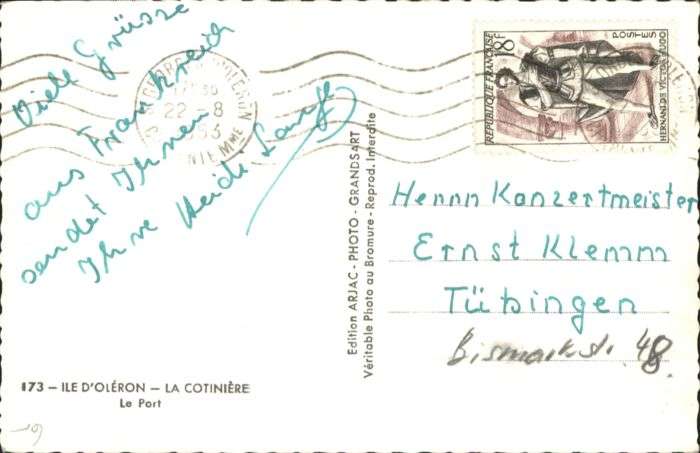 Viele Grüsse
aus Frankreich
sendet Ihnen
Ihre Heide Lange
22-8
REPUBLIQUE FRANÇAISE
18F
POSTES
HERNANI DE VICTOR HUGO
Herrn Konzertmeister
Ernst Klemm
Tübingen
Bismarkstr. 48.
Edition ARJAC - PHOTO - GRANDSART
Véritable Photo au Bromure - Reprod. Interdite
173 — ILE D'OLÉRON — LA COTINIÈRE
Le Port